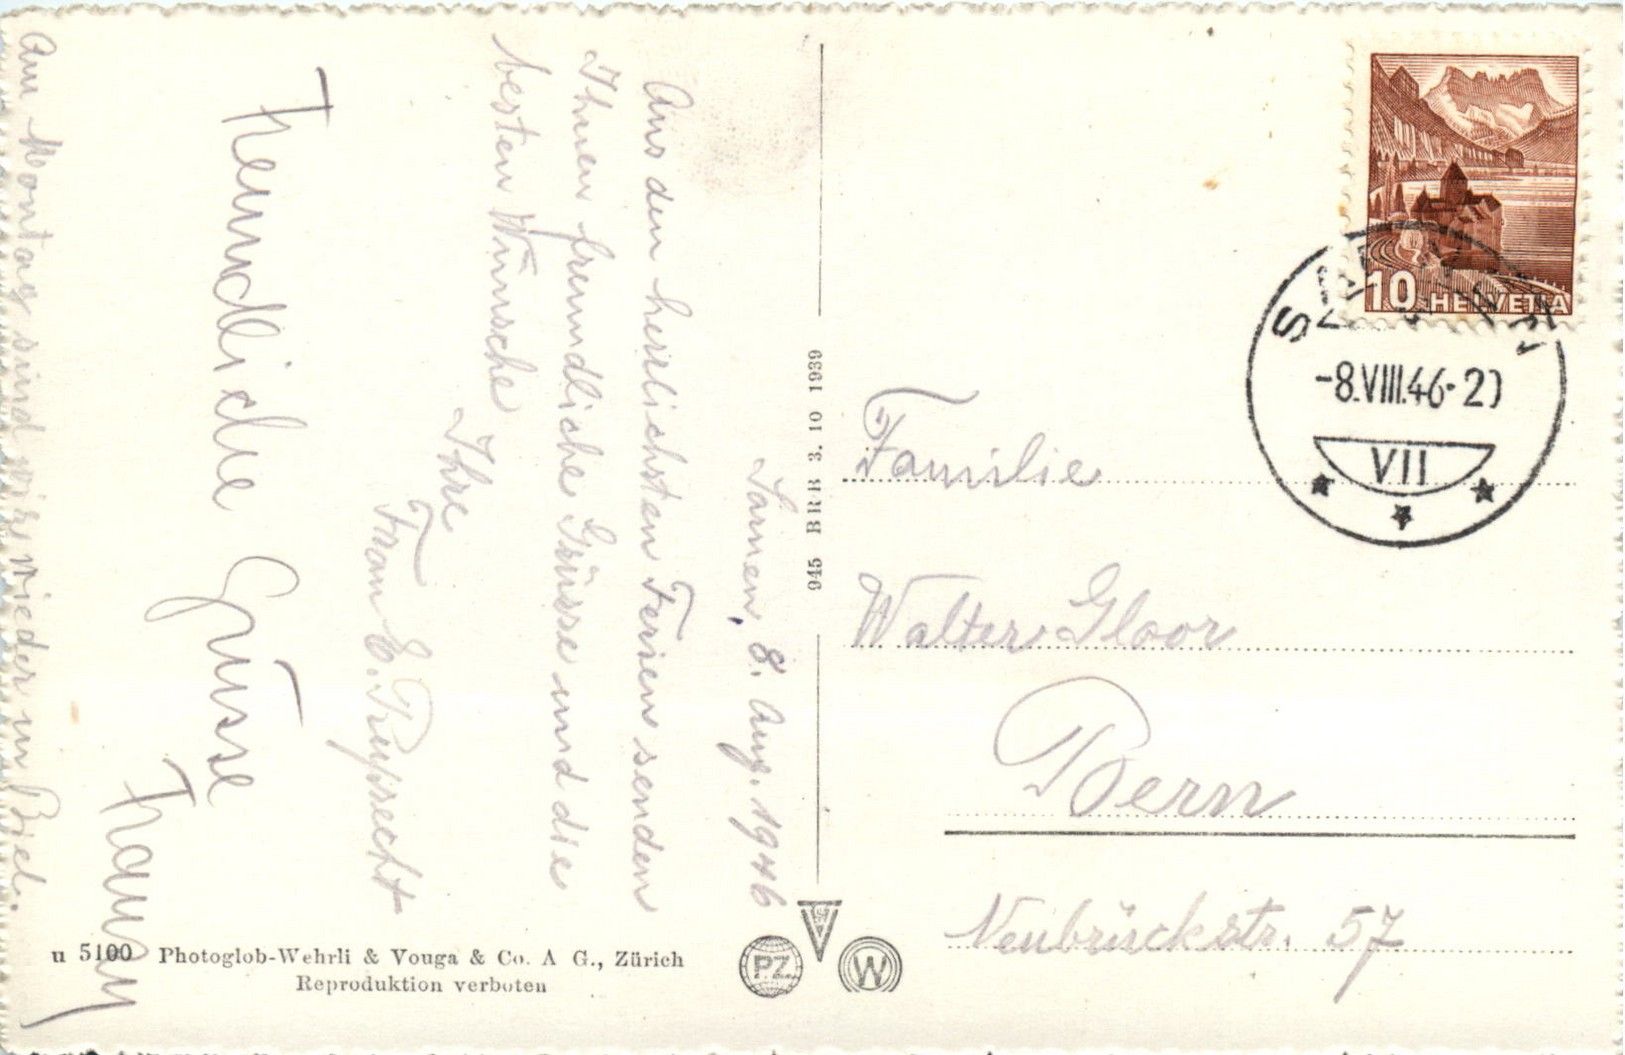 Sarnen, 8. Aug. 1946
Aus den herrlichsten Ferien senden
Ihnen freundliche Grüsse und die
besten Wünsche
Ihre
Frau E.
Freundliche Grüsse
Am Montag sind wir wieder in Biel.
u 5100 Photoglob-Wehrli & Vouga & Co. A G., Zürich
Reproduktion verboten
945 BRB 3. 10 1939
PZ
W
10 HELVETIA
-8.VIII.46-20
VII
Familie
Walter Gloor
Bern
Neubrückstr. 57